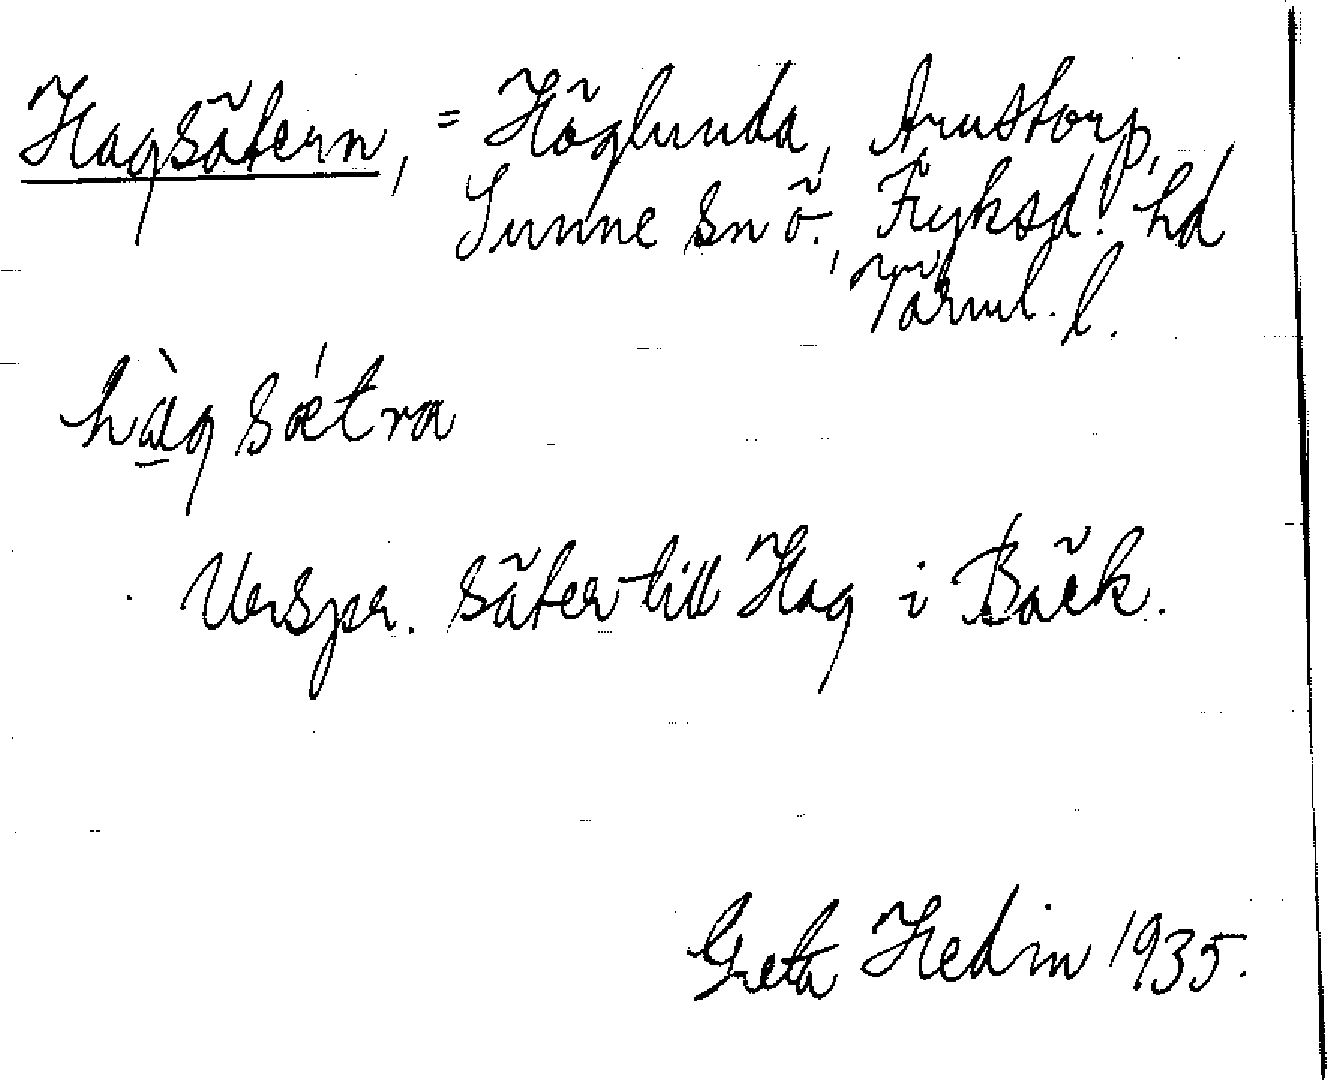 Hagsätern, = Höglunda, Arnstorp,
Sunne sn ö., Fryksd. hd
Värml. l.
hàg sǽtra
Urspr. säter till Hag i Bäck.
Greta Hedin 1935.